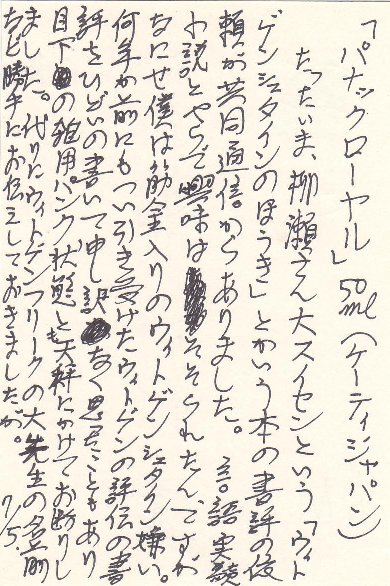 「パナックローヤル」50ml(ケーティジャパン)
たったいま、柳瀬さん大スイセンという「ウィト
ゲンシュタインのほうき」とかいう本の書評の依
頼が共同通信からありました。言語実験
小説とやらで興味はそそられたんですが
なにせ僕は筋金入りのウィトゲンシュタイン嫌い。
何年か前にもつい引き受けたウィトゲンの評伝の書
評をひどいの書いて申し訳なく思ったこともあり
目下の雑用パンク状態とも天秤にかけてお断りし
ました。代りにウィトゲンフリークの大先生の名前
など勝手にお伝えしておきましたが。 7/5.